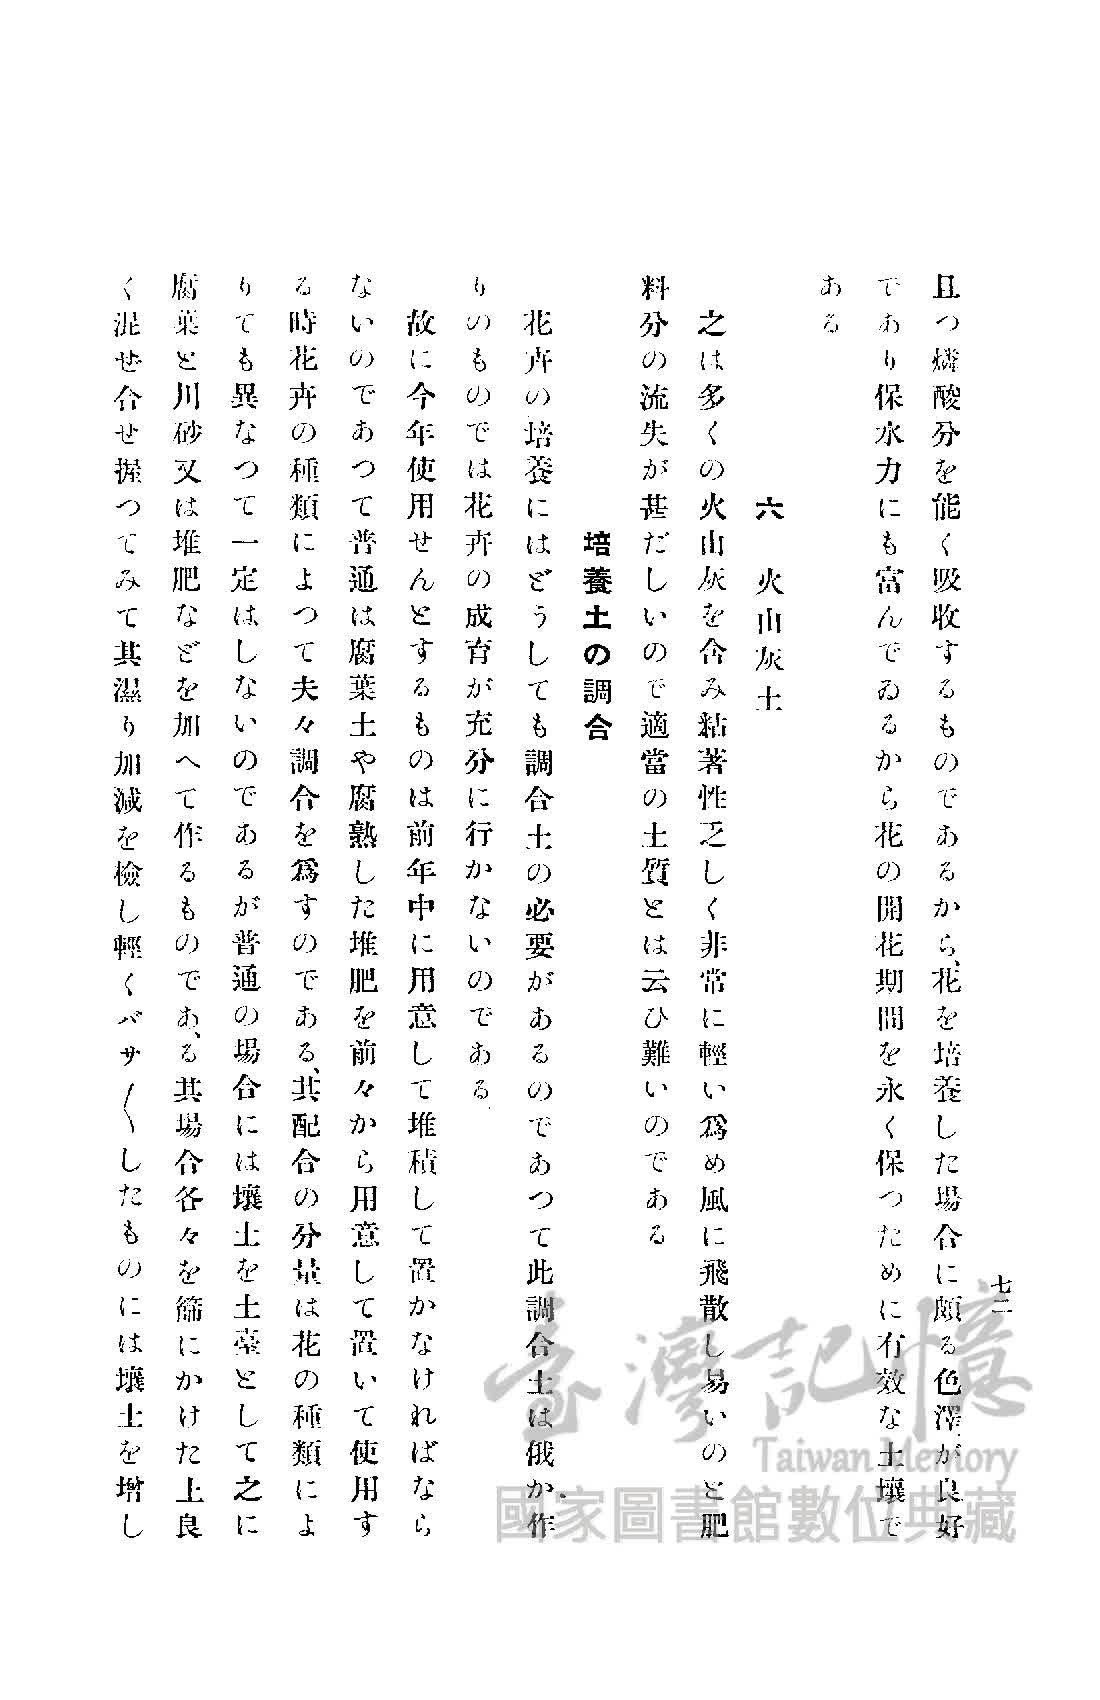 七二
且つ燐酸分を能く吸收するものであるから、花を培養した場合に頗る色澤が良好
であり保水力にも富んでゐるから花の開花期間を永く保つために有效な土壤で
ある
六　火山灰土
之は多くの火山灰を含み粘著性乏しく非常に輕い爲め風に飛散し易いのと肥
料分の流失が甚だしいので適當の土質とは云ひ難いのである
培養土の調合
花卉の培養にはどうしても調合土の必要があるのであつて此調合土は俄か作
りのものでは花卉の成育が充分に行かないのである
故に今年使用せんとするものは前年中に用意して堆積して置かなければなら
ないのであつて普通は腐葉土や腐熟した堆肥を前々から用意して置いて使用す
る時花卉の種類によつて夫々調合を爲すのである、其配合の分量は花の種類によ
りても異なつて一定はしないのであるが普通の場合には壤土を土臺として之に
腐葉と川砂又は堆肥などを加へて作るものであ、る其場合各々を篩にかけた上良
く混ぜ合せ握つてみて其濕り加減を檢し輕くバサ〱したものには壤土を增し
臺灣記憶
Taiwan Memory
國家圖書館數位典藏